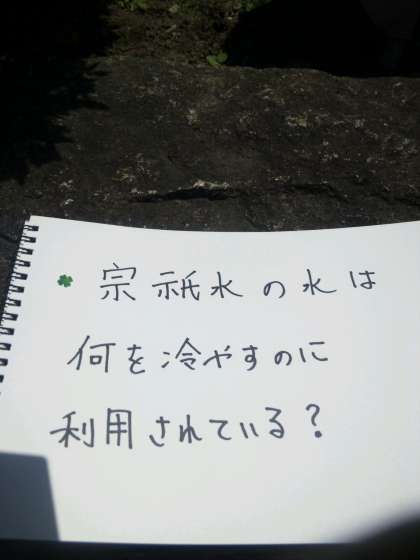 宗祇水の水は
何を冷やすのに
利用されている?